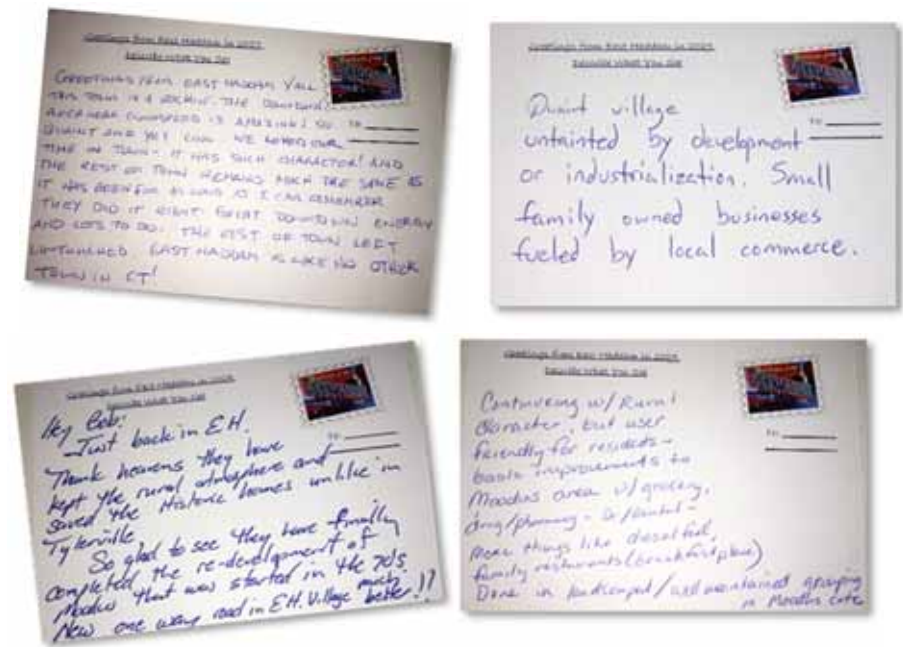 Greetings from East Haddam in
Describe What You See
GREETINGS FROM EAST HADDAM Y'ALL
THIS TOWN IS A ROCKIN'. THE DOWNTOWN
AREA NEAR GOODSPEED IS AMAZING! SO
QUAINT AND YET COOL. WE LOVED OUR
TIME IN TOWN - IT HAS SUCH CHARACTER! AND
THE REST OF TOWN REMAINS MUCH THE SAME AS
IT HAS BEEN FOR AS LONG AS I CAN REMEMBER
THEY DID IT RIGHT. GREAT DOWNTOWN ENERGY
AND LOTS TO DO. THE REST OF TOWN LEFT
UNTOUCHED. EAST HADDAM IS LIKE NO OTHER
TOWN IN CT!
TO:
Greetings from East Haddam in
Describe What You See
Quaint village
untainted by development
or industrialization. Small
family owned businesses
fueled by local commerce.
TO:
Greetings from East Haddam in
Describe What You See
Hey Bob:
Just back in E.H.
Thank heavens they have
kept the rural atmosphere and
saved the Historic homes unlike in
Tylerville
So glad to see they have finally
completed the re-development of
Moodus that was started in the 70's.
New one way road in E.H. Village much
better!!
TO:
Greetings from East Haddam in
Describe What You See
Continuing w/ Rural
Character, but user
friendly for residents -
basic improvements to
Moodus area w/ grocery,
drug/pharmacy - Dr/Dental -
more things like
family restaurants (breakfast place)
Done in landscaped/well maintained grouping
in Moodus
TO: